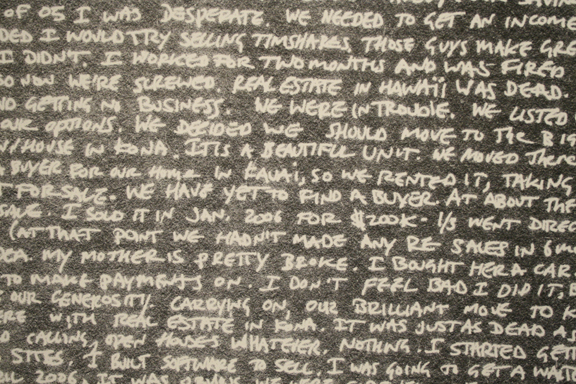 OF 05 I WAS DESPERATE. WE NEEDED TO GET AN INCOME
DED I WOULD TRY SELLING TIMESHARES, THOSE GUYS MAKE GRE
I DIDN'T. I WORKED FOR TWO MONTHS AND WAS FIRED
SO NOW WE'RE SCREWED. REAL ESTATE IN HAWAII WAS DEAD.
ND GETTING NO BUSINESS. WE WERE IN TROUBLE. WE LISTED
OUR OPTIONS. WE DECIDED WE SHOULD MOVE TO THE BIG
N/HOUSE IN KONA. IT IS A BEAUTIFUL UNIT. WE MOVED THERE
A BUYER FOR OUR HOME IN KAUAI, SO WE RENTED IT, TAKING
T FOR SALE. WE HAVE YET TO FIND A BUYER. AT ABOUT THE
SAVE. I SOLD IT IN JAN. 2006 FOR $200K. 1/3 WENT DIREC
(AT THAT POINT WE HADN'T MADE ANY RE SALES IN 6 M
MY MOTHER IS PRETTY BROKE. I BOUGHT HER A CAR.
TO MAKE PAYMENTS ON. I DON'T FEEL BAD I DID IT, B
OUR GENEROSITY. CARRYING ON, OUR BRILLIANT MOVE TO K
ERE WITH REAL ESTATE IN KONA. IT WAS JUST AS DEAD A
D CALLING, OPEN HOUSES WHATEVER. NOTHING. I STARTED GETT
SITES. I BUILT SOFTWARE TO SELL. I WAS GOING TO GET A
2006. IT WAS